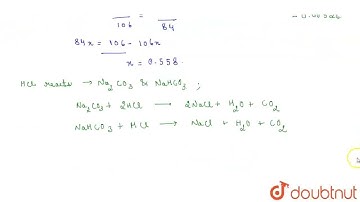 106 = 84
84x = 106 - 106x
x = 0.558
HCl reacts → Na₂CO₃ & NaHCO₃ ;
Na₂CO₃ + 2HCl ⟶ 2NaCl + H₂O + CO₂
NaHCO₃ + HCl ⟶ NaCl + H₂O + CO₂
doubtnut